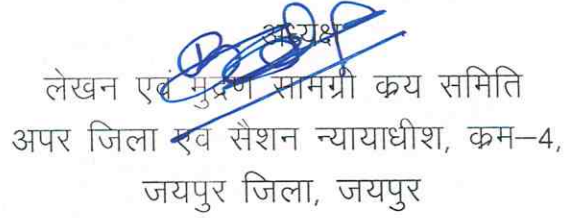 अध्यक्ष
लेखन एवं मुद्रण सामग्री क्रय समिति
अपर जिला एवं सैशन न्यायाधीश, क्रम–4,
जयपुर जिला, जयपुर